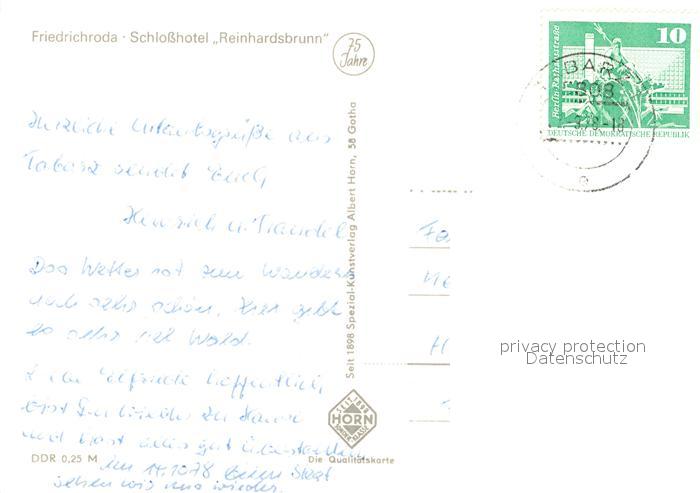 Friedrichroda · Schloßhotel „Reinhardsbrunn"
75
Jahre
Herzliche Urlaubsgrüße aus
Tabarz sendet Euch
Heinrich u. Traudel
Das Wetter ist zum Wandern
noch sehr schön. Hier gibt
es sehr viel Wald.
Liebe Elfriede hoffentlich
bist Du wieder zu Hause
und hast alles gut überstanden
Am 14.10.78
sehen wir uns wieder.
DDR 0,25 M
Seit 1898 Spezial-Kunstverlag Albert Horn, 58 Gotha
SEIT 1898
HORN
Die Qualitätskarte
10
Berlin Rathausstraße
DEUTSCHE DEMOKRATISCHE REPUBLIK
808
privacy protection
Datenschutz